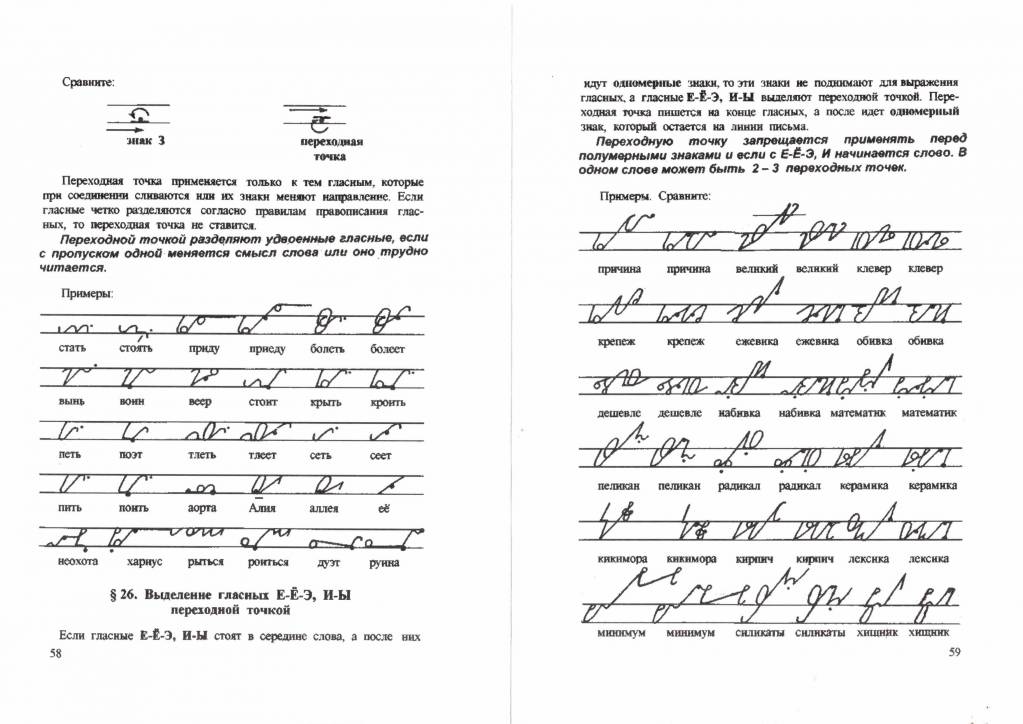 Сравните:
знак 3 переходная
точка
Переходная точка применяется только к тем гласным, которые
при соединении сливаются или их знаки меняют направление. Если
гласные четко разделяются согласно правилам правописания глас-
ных, то переходная точка не ставится.
Переходной точкой разделяют удвоенные гласные, если
с пропуском одной меняется смысл слова или оно трудно
читается.
Примеры:
стать стоять приду приеду болеть болеет
вынь воин веер стоит крыть кроить
петь поэт тлеть тлеет сеть сеет
пить поить аорта Алия аллея её
неохота хариус рыться роиться дуэт руина
§ 26. Выделение гласных Е-Ё-Э, И-Ы
переходной точкой
Если гласные Е-Ё-Э, И-Ы стоят в середине слова, а после них
58
идут одномерные знаки, то эти знаки не поднимают для выражения
гласных, а гласные Е-Ё-Э, И-Ы выделяют переходной точкой. Пере-
ходная точка пишется на конце гласных, а после идет одномерный
знак, который остается на линии письма.
Переходную точку запрещается применять перед
полумерными знаками и если с Е-Ё-Э, И начинается слово. В
одном слове может быть 2 – 3 переходных точек.
Примеры. Сравните:
причина причина великий великий клевер клевер
крепеж крепеж ежевика ежевика обивка обивка
дешевле дешевле набивка набивка математик математик
пеликан пеликан радикал радикал керамика керамика
кикимора кикимора кирпич кирпич лексика лексика
минимум минимум силикаты силикаты хищник хищник
59